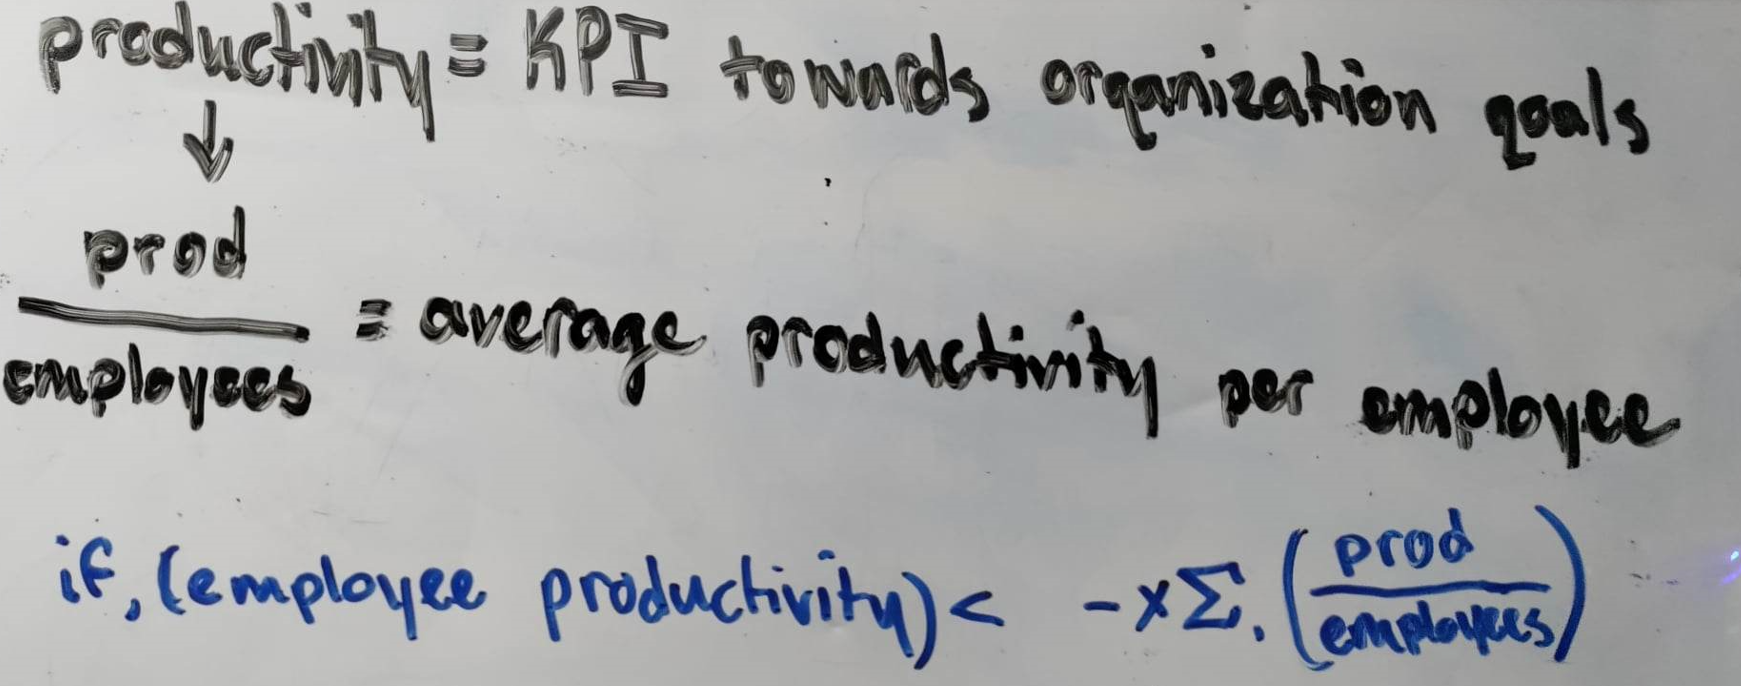 productivity ≡ KPI towards organization goals
↓
prod
employees
≡ average productivity per employee
if, (employee productivity) < -xΣ. (prod/employees)